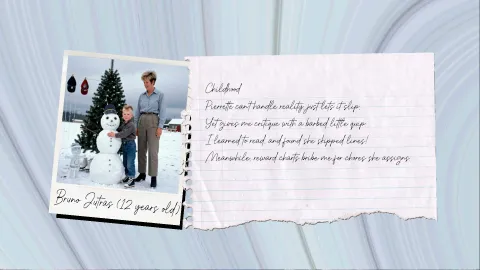 Childhood
Pierrette can't handle reality, just lets it slip
Yet gives me critique with a barbed little quip
I learned to read, and found she skipped lines!
Meanwhile, reward charts bribe me for chores she assigns
Bruno Jutras (12 years old)